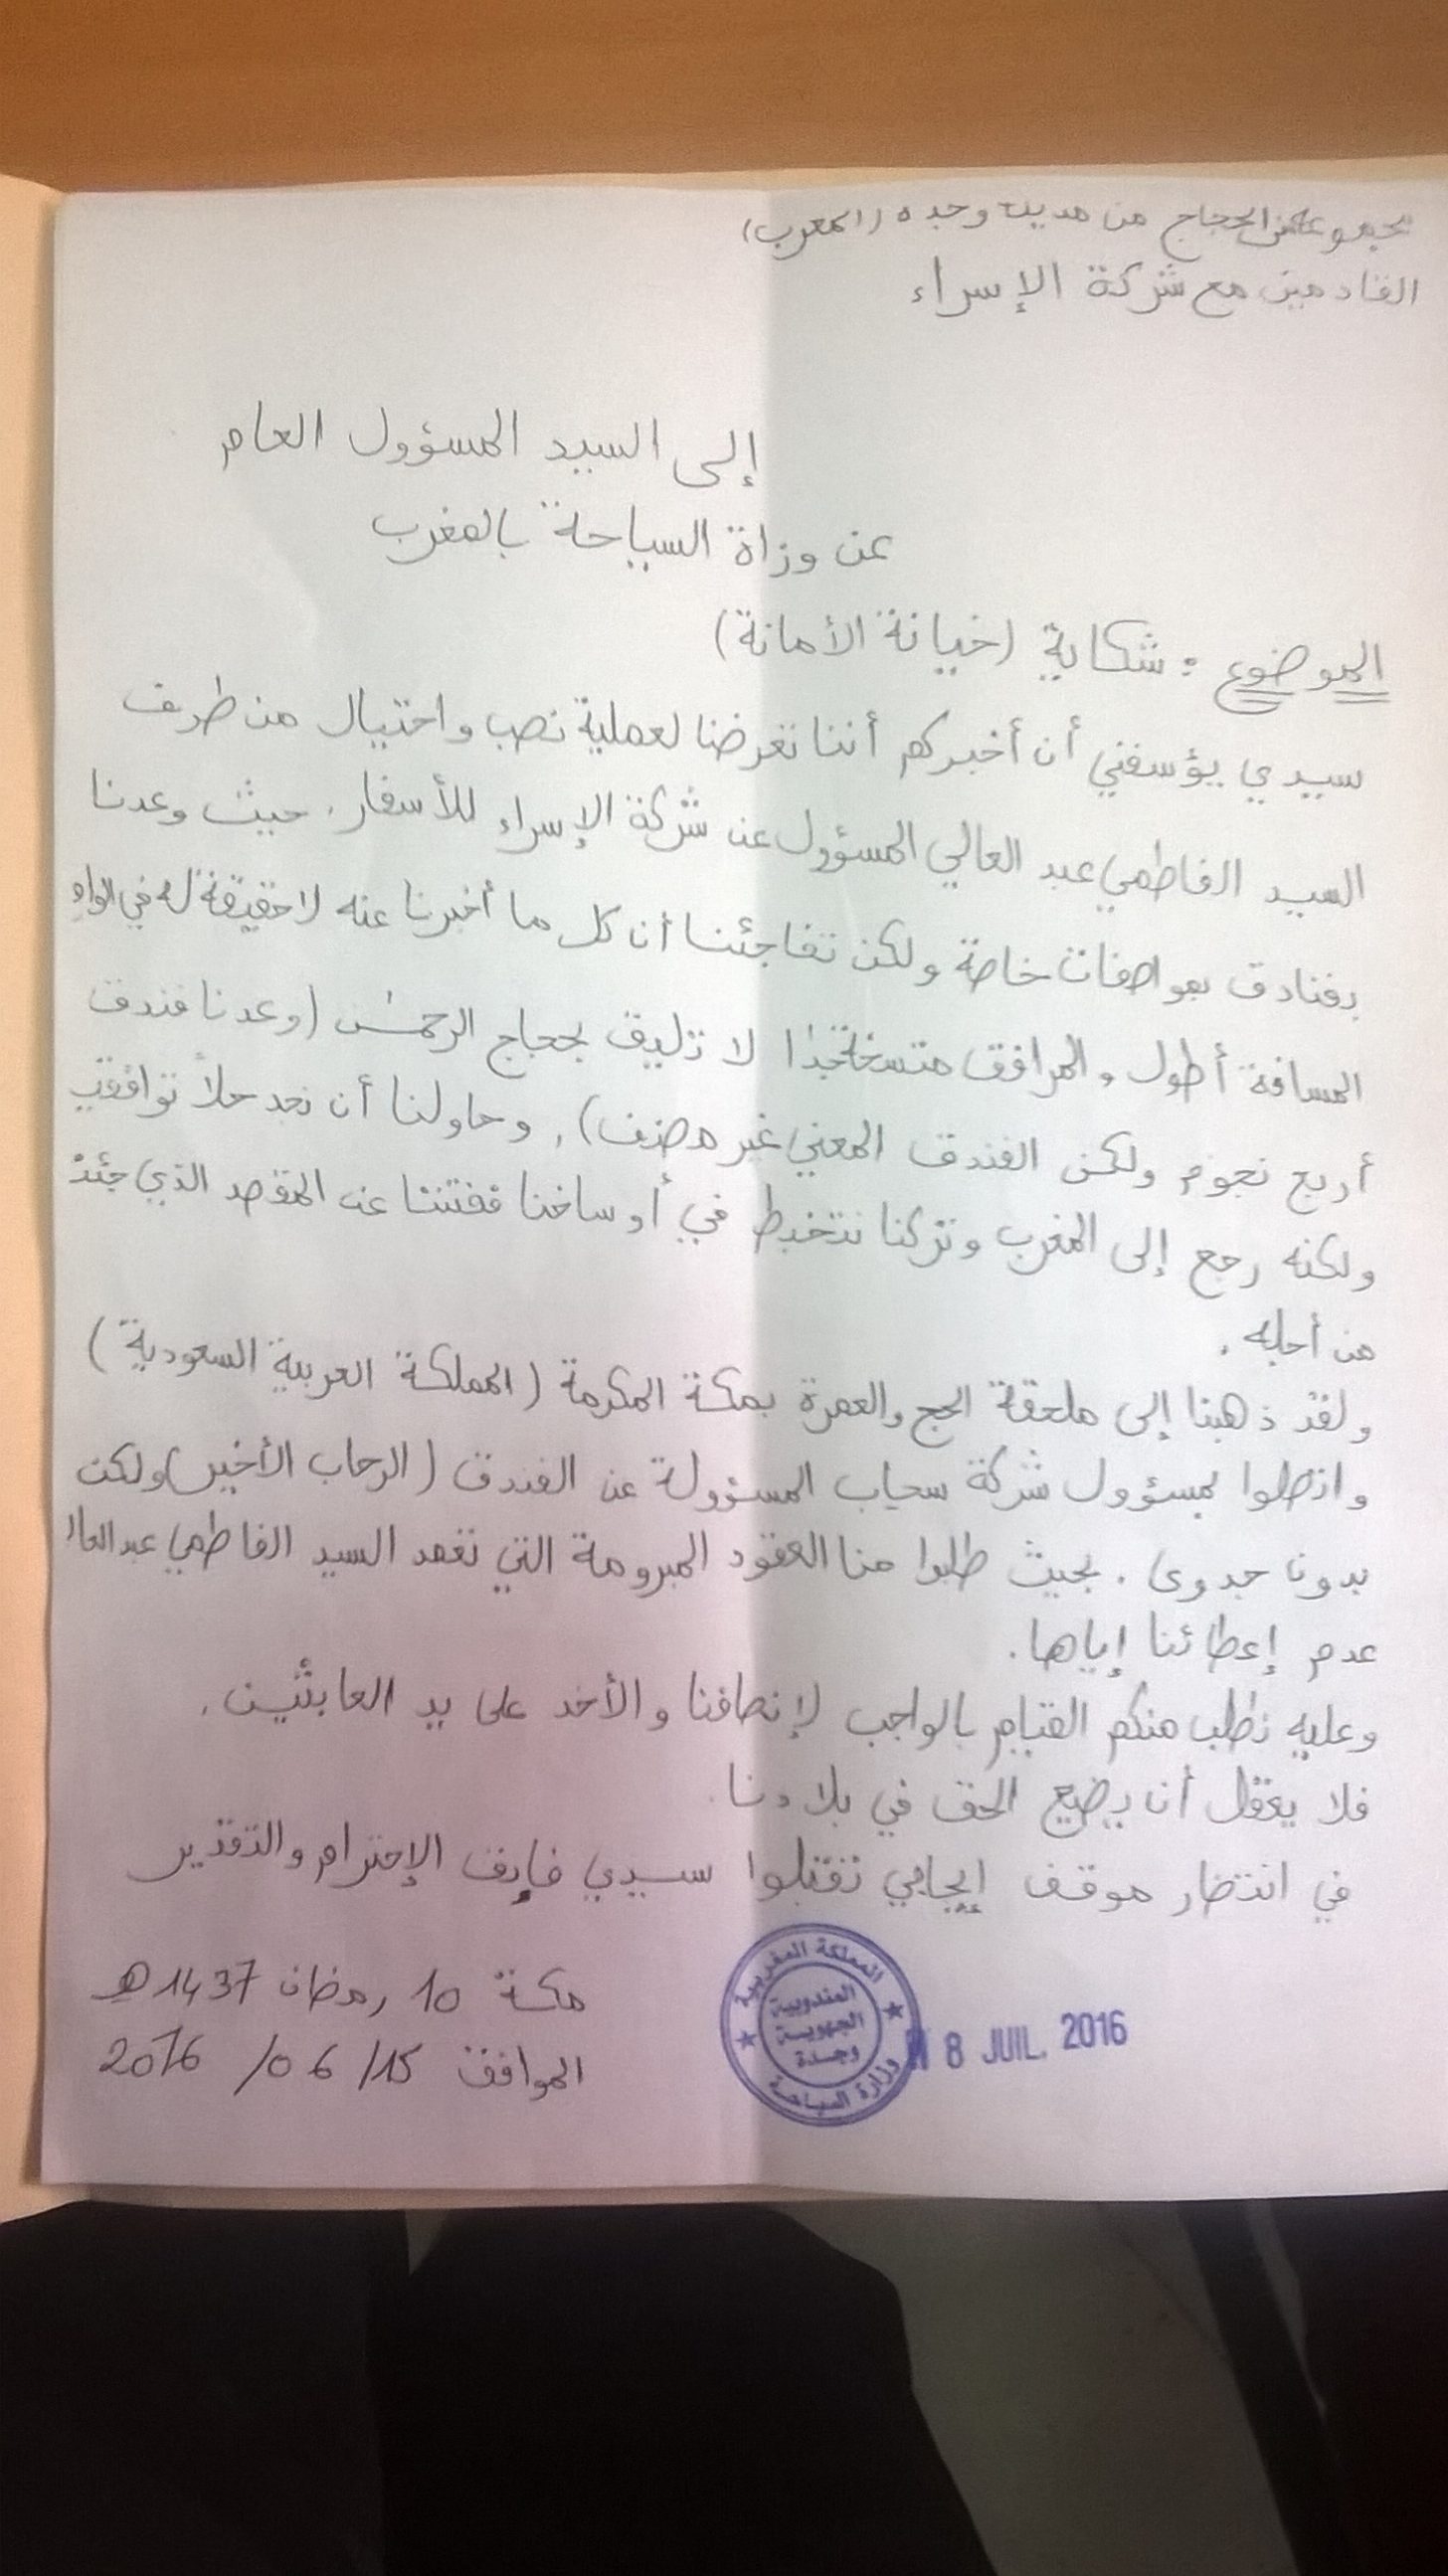 مجموعة من الحجاج من مدينة وجدة (المغرب)
القادمين مع شركة الإسراء
إلى السيد المسؤول العام
عن وزاة السياحة بالمغرب
الموضوع : شكاية (خيانة الأمانة)
سيدي يؤسفني أن أخبركم أننا تعرضنا لعملية نصب واحتيال من طرف
السيد الفاطمي عبد العالي المسؤول عن شركة الإسراء للأسفار. حيث وعدنا
بفنادق بمواصفات خاصة ولكن تفاجئنا أن كل ما أخبرنا عنه لا حقيقة له في
المسافة أطول والمرافق متسخة جدا لا تليق بحجاج الرحمن (وعدنا فندق
أربع نجوم ولكن الفندق المعني غير مصنف). وحاولنا أن نجد حلاً توافقي
ولكنه رجع إلى المغرب وتركنا نتخبط في أوساخنا ففتننا عن المقصد الذي جئنا
من أجله.
ولقد ذهبنا إلى ملحقة الحج والعمرة بمكة المكرمة (المملكة العربية السعودية)
واتصلوا بمسؤول شركة سحاب المسؤولة عن الفندق (الرحاب الأخير) ولكن
بدون جدوى. بحيث طلبوا منا العقود المبرومة التي تعمد السيد الفاطمي عبد العا
عدم إعطائنا إياها.
وعليه نطلب منكم القيام بالواجب لإنصافنا والأخد على يد العابثين.
فلا يعقل أن يضيع الحق في بلادنا.
في انتظار موقف إيجابي تقبلوا سيدي فايق الإحترام والتقدير
مكة 10 رمضان 1437 ه
الموافق 15/ 06/ 2016
المملكة المغربية
المندوبية
الجهوية
وجدة
وزارة السياحة
8 JUIL. 2016